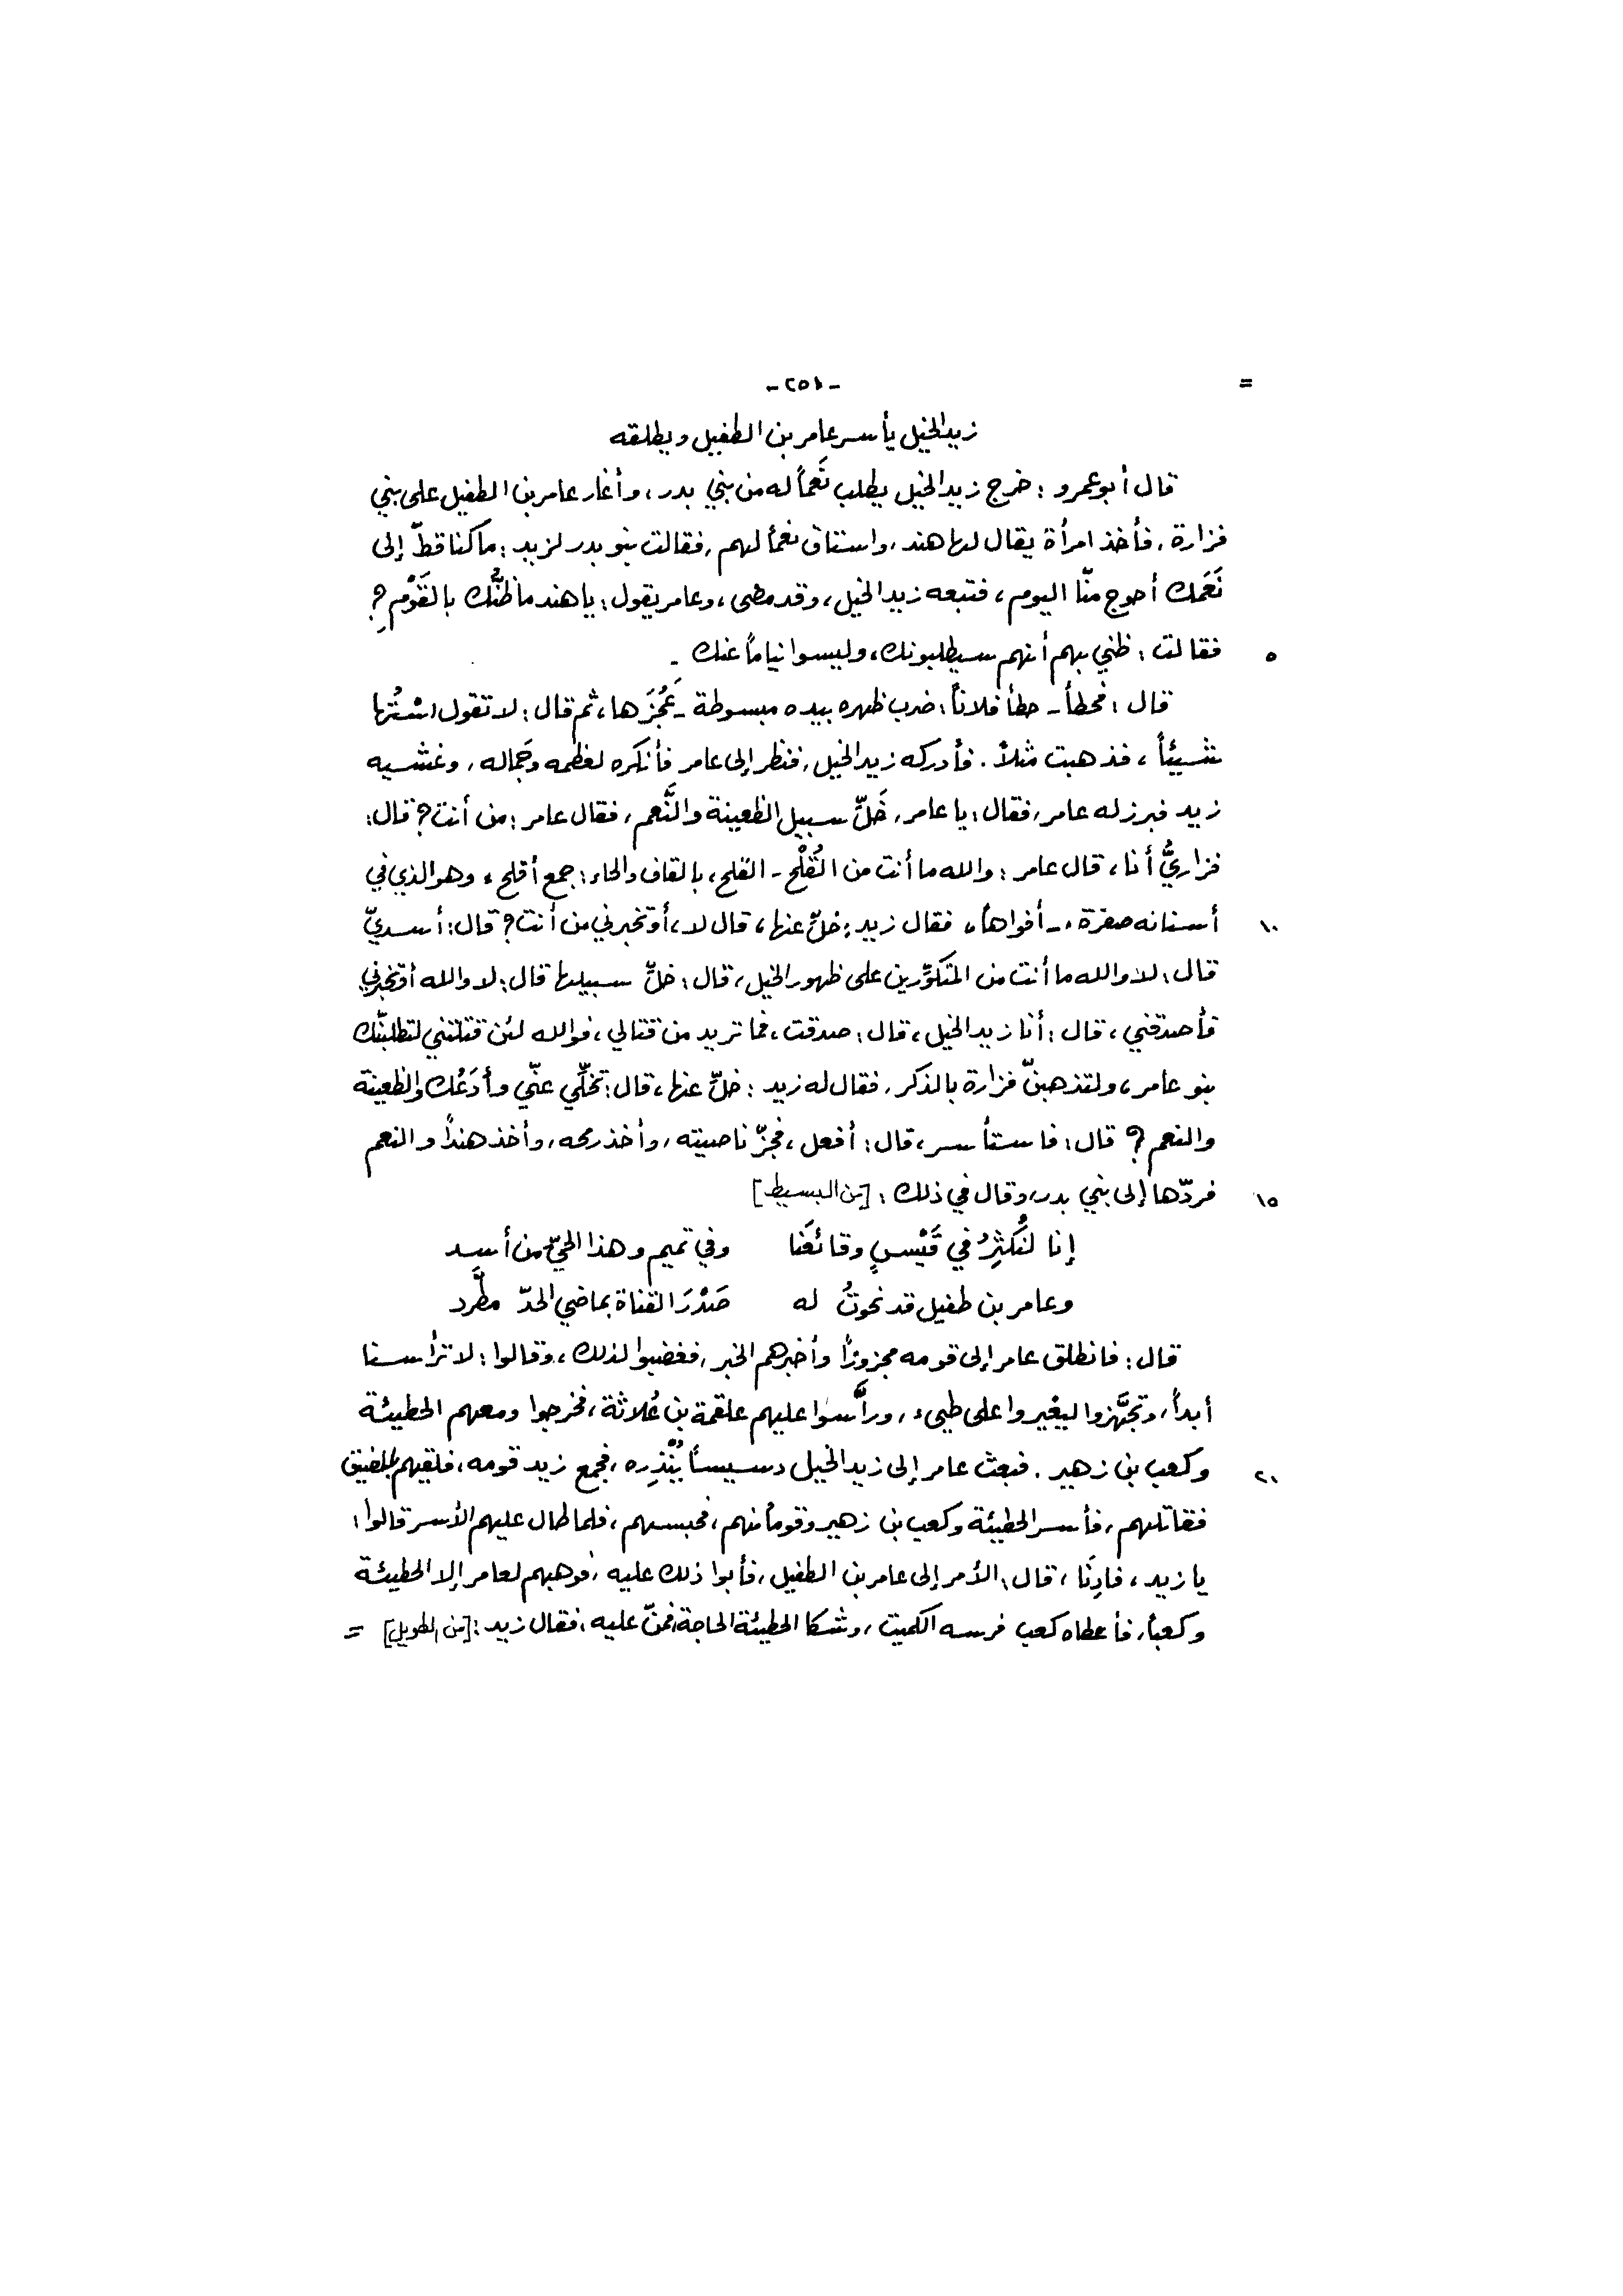 = -٢٥١-
زيد الخيل يأسر عامر بن الطفيل ويطلقه
قال أبو عمرو: خرج زيد الخيل يطلب نَعَماً له من بني بدر، وأغار عامر بن الطفيل على بني
فزارة، فأخذ امرأة يقال لها هند، واستاق نعماً لهم، فقالت بنو بدر لزيد: ما كنا قطّ إلى
نَعَمك أحوج منّا اليوم، فتبعه زيد الخيل، وقد مضى، وعامر يقول: يا هند ما ظنُّك بالقَوْمِ؟
٥ فقالت: ظني بهم أنهم سيطلبونك، وليسوا نياماً عنك.
قال: فحطأ - حطأ فلاناً: ضرب ظهره بيده مبسوطة - عَجُزَها، ثم قال: لا تقول اسْتُها
شيئاً، فذهبت مثلاً. فأدركه زيد الخيل، فنظر إلى عامر فأنكره لعظمه وجَماله، وغشيه
زيد فبرز له عامر، فقال: يا عامر، خَلِّ سبيل الظعينة والنَّعم، فقال عامر: من أنت؟ قال:
فزاريُّ أنا، قال عامر: والله ما أنت من القُلْح - القلح، بالقاف والحاء: جمع أقلح، وهو الذي في
١٠ أسنانه صفرة، - أفواهاً، فقال زيد: خلِّ عنها، قال لا، أو تخبرني من أنت؟ قال: أسديّ
قال: لا والله ما أنت من المتكوِّرين على ظهور الخيل، قال: خلِّ سبيلها قال: لا والله أو تخبرني
فأصدقني، قال: أنا زيد الخيل، قال: صدقت، فما تريد من قتالي، فوالله لئن قتلتني لتطلبنّك
بنو عامر، ولتذهبنّ فزارة بالذكر، فقال له زيد: خلِّ عنها، قال: تخلِّي عنّي وأدَعُك والظعينة
والنعم؟ قال: فاستأسر، قال: أفعل، فجزّ ناصيته، وأخذ رمحه، وأخذ هنداً والنعم
١٥ فردّها إلى بني بدر، وقال في ذلك: [من البسيط]
إنا لنُكثِرُ في قَيْسٍ وقائعَنا وفي تميم وهذا الحيّ من أسدِ
وعامر بن طفيل قد نحوتُ له صَدْرَ القناة بماضي الحدّ مطَّرد
قال: فانطلق عامر إلى قومه مجزوزاً وأخبرهم الخبر، فغضبوا لذلك، وقالوا: لا ترأسنا
أبداً، وتجهَّزوا ليغيروا على طيىء، ورأَّسوا عليهم علقمة بن عُلاثة، فخرجوا ومعهم الحطيئة
٢٠ وكعب بن زهير. فبعث عامر إلى زيد الخيل دسيساً يُنْذِره، فجمع زيد قومه، فلقيهم بالمضيق
فقاتلهم، فأسر الحطيئة وكعب بن زهير وقوماً منهم، فحبسهم، فلما طال عليهم الأسر قالوا:
يا زيد، فادِنَا، قال: الأمر إلى عامر بن الطفيل، فأبوا ذلك عليه، فوهبهم لعامر إلا الحطيئة
وكعباً، فأعطاه كعب فرسه الكميت، وشكا الحطيئة الحاجة، فمنّ عليه، فقال زيد: [من الطويل] =